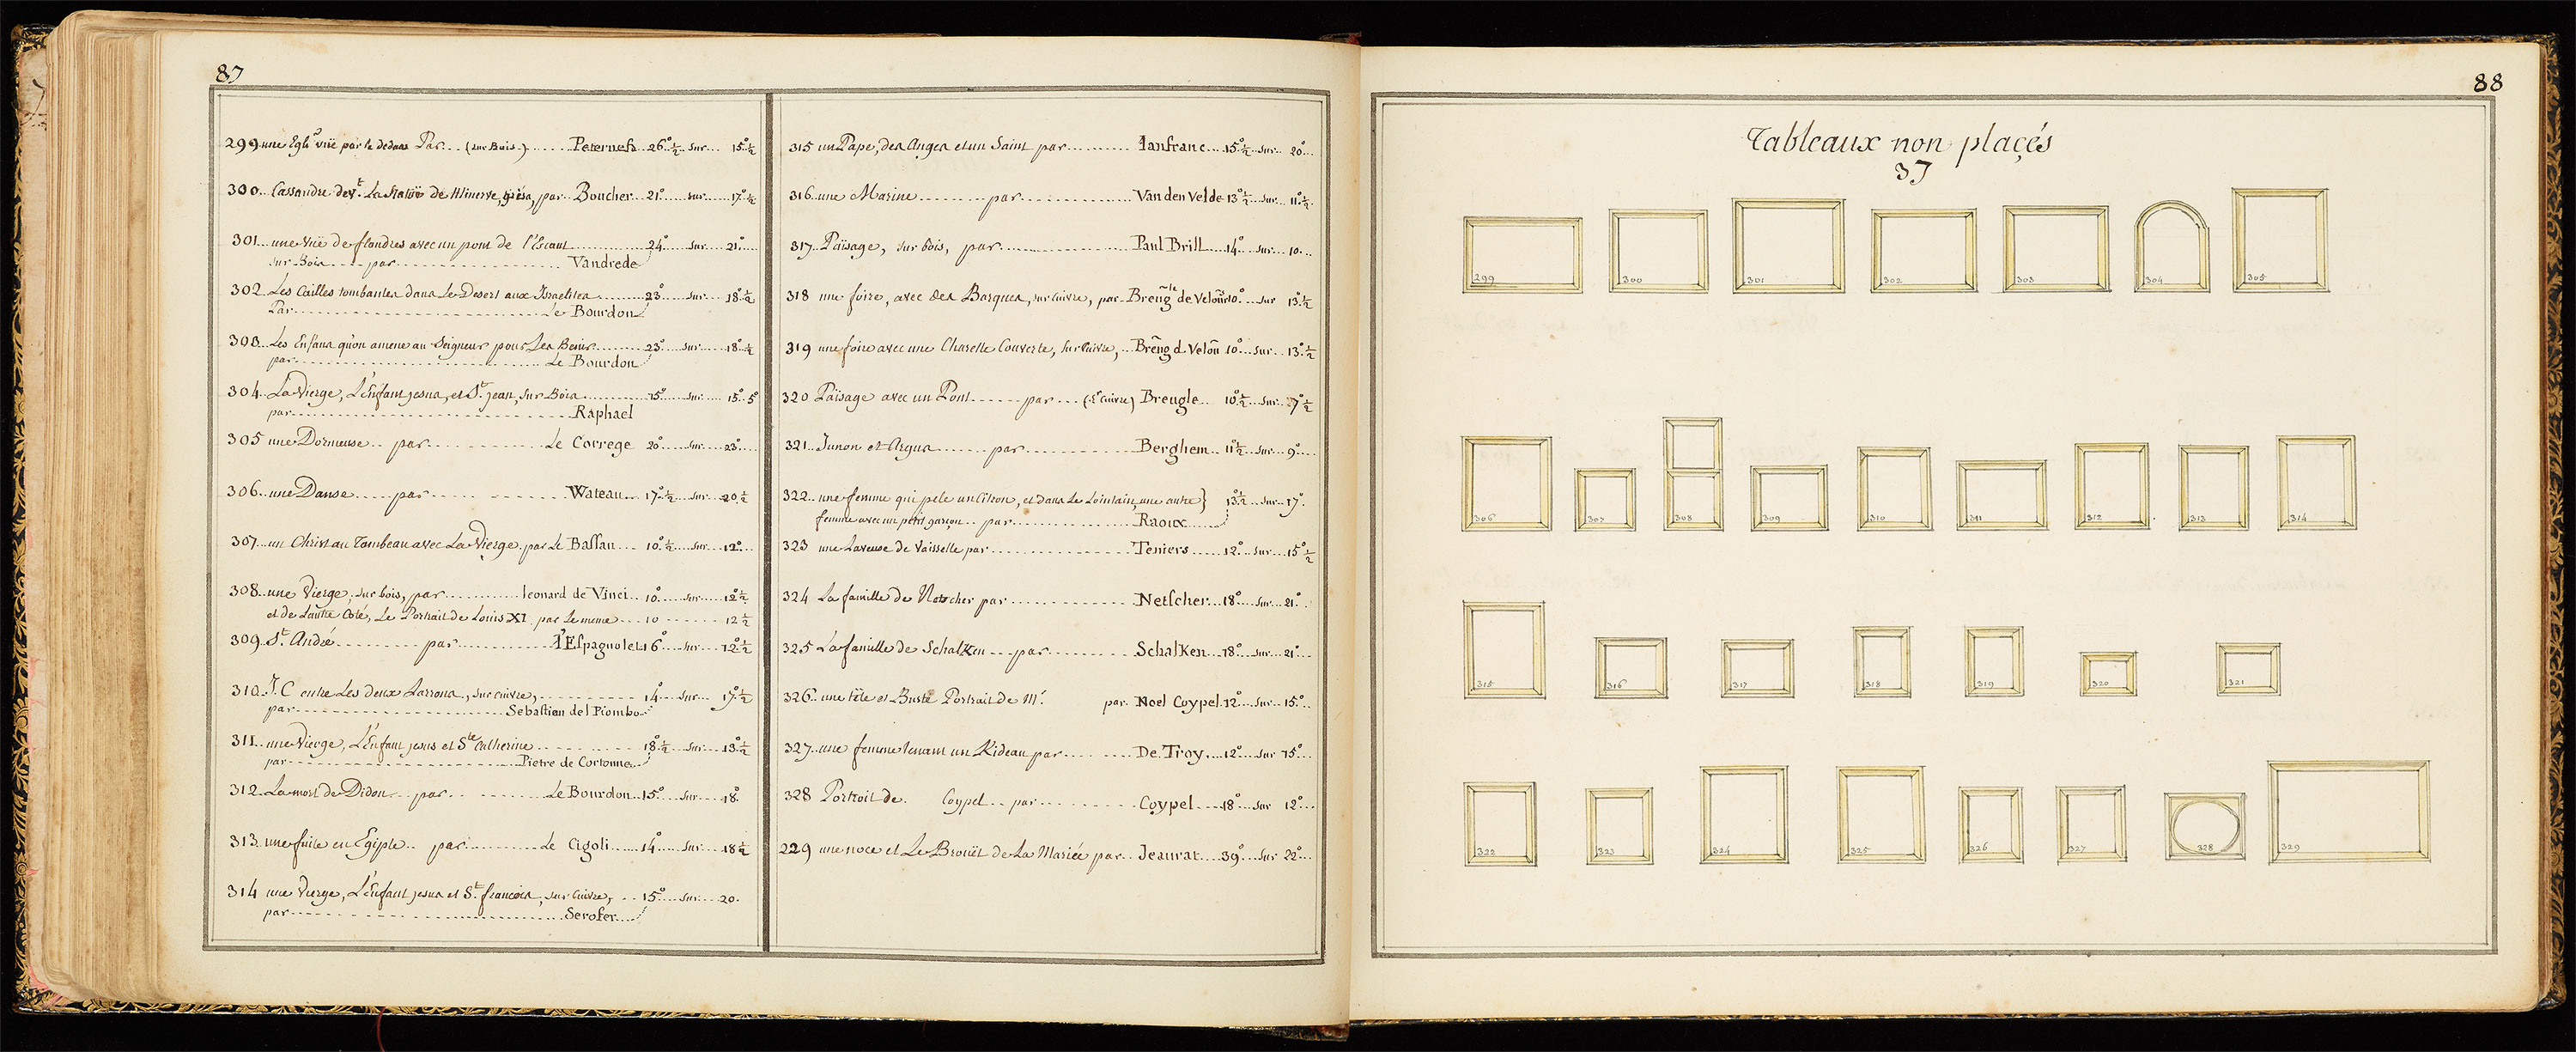 87
299. une Egl.e vüe par le dedans Par... (sur Bois.)...... Peternefs 26.° 1/2 .. sur .... 15.° 1/2
300. Cassandre dev.t La Statüe de Minerve, par.. Boucher.. 21.° ..... sur ..... 17.° 1/2
301. une vüe de flandres avec un pont de l'Escaut ............ 24.° .... sur .... 21.° ....
sur Bois .... par .................. Vandrede
302. Les Cailles tombantes dans Le Desert aux Israelites ......... 23.° ..... sur ..... 18.° 1/2
Par ........................ Le Bourdon
303. Les Enfans qu'on amene au Seigneur pour Les Benir ........ 23.° ..... sur ..... 18.° 1/2
par ........................ Le Bourdon
304. La Vierge, L'Enfant jesus, et S.t jean, sur Bois .......... 15.° .... sur .... 15. 5.°
par ........................ Raphael
305 une Dormeuse .. par ............ Le Correge 20.° .... sur .... 23.° ....
306. une Danse .... par ............ Wateau... 17.° 1/2 .. sur .. 20. 1/2
307. un Christ au Tombeau avec La Vierge. par Le Bassan ... 10.° 1/2 .... sur ... 12.° ...
308. une Vierge, sur bois, par ........... leonard de Vinci .. 10.° .... sur .... 12.° 1/2
et de Lautre Coté, Le Portrait de Louis XI. par Le meme ... 10 ....... 12 1/2
309. S.t André ......... par ........... l'Espagnolet 16.° .... sur .... 12.° 1/2
310. J. C entre Les deux Larrons, sur cuivre, .......... 14.° .... sur ... 17.° 1/2
par ...................... Sebastien del Piombo
311. une Vierge, L'Enfant jesus et S.te Catherine ............ 18.° 1/2 .... sur .... 13.° 1/2
par ........................ Pietre de Cortonne
312. La mort de Didon .. par .......... Le Bourdon .. 15.° .... sur .... 18.°
313. une fuite en Egipte .. par .......... Le Cigoli ..... 14.° .... sur .... 18 1/2
314 une Vierge, L'Enfant jesus et S.t francois, sur Cuivre, .. 15.° .... sur .... 20.
par ........................ Serofer
315 un Pape, des Anges et un Saint par .......... lanfranc ... 15.° 1/2 .. sur .. 20.° ...
316. une Marine ......... par ............... Van den Velde 13.° 1/2 .. sur ... 11.° 1/2
317. Païsage, sur bois, par ................. Paul Brill ... 14.° .... sur ... 10. ..
318 une foire, avec des Barques, sur cuivre, par.. Breug.le de Velour 10.° ... sur 13.° 1/2
319 une foire avec une Charette Couverte, sur Cuivre, .. Breug d Velou 10.° ... sur .. 13.° 1/2
320 Païsage avec un Pont ..... par ... (S.r Cuivre) Breugle .. 10.° 1/2 ... sur .. 7.° 1/2
321.. Junon et Argus ....... par ............ Berghem .. 11.° 1/2 .. sur ... 9.° ....
322.. une femme qui pele un Citron, et dans Le Lointain, une autre } 13.° 1/2 .. sur .. 17.°
femme avec un petit garçon .. par .............. Raoux
323 une Laveuse de Vaisselle par ................. Teniers ..... 12.° ... sur .... 15.° 1/2
324 La famille de Netscher par .............. Netscher ... 18.° .... sur .. 21.° .
325 La famille de Schalken .... par ........... Schalken ... 18.° .... sur ... 21.° ...
326. une tête et Buste Portrait de M.r par. Noel Coypel. 12.° ... sur ... 15.° ..
327. une femme tenant un Rideau par ........ De Troy .... 12.° .... sur 15.° ...
328 Portrait de. Coypel .. par ........... Coypel .... 18.° .... sur 12.° ...
229 une noce et Le Brouët de La Mariée par.. Jeaurat .... 39.° ... sur 22.° ...
88
Tableaux non plaçés
37
299 300 301 302 303 304 305
306 307 308 309 310 311 312 313 314
315 316 317 318 319 320 321
322 323 324 325 326 327 328 329